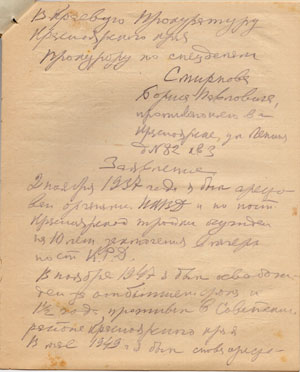 В Краевую Прокуратуру
Красноярского края
Прокурору по спецделам
Смирнова
Бориса Павловича,
проживающего в г.
Красноярске, ул. Ленина
д. № 82 кв 3
Заявление
2 ноября 1937 года я был аресто-
ван органами НКВД и по пост.
Красноярской тройки осужден
на 10 лет заключения в лагерь
по ст. К.Р.D.
В ноябре 1947 я был освобож-
ден за отбытием срока и
1½ года проживал в Советском
районе Красноярского края
В мае 1949 я был снова аресто-